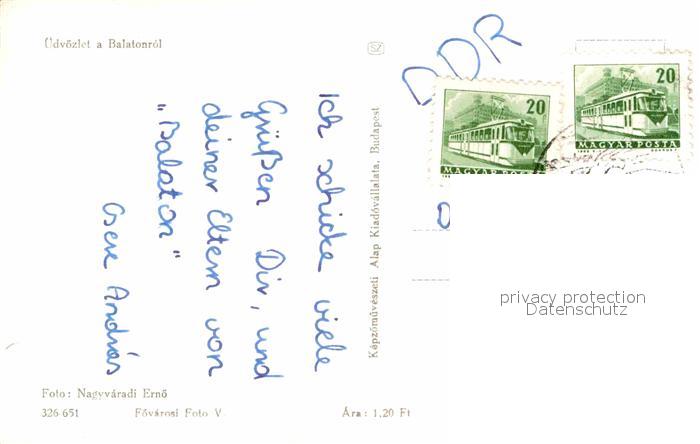 Üdvözlet a Balatonról
SZ
DDR
20
MAGYAR POSTA
20
MAGYAR POSTA
Ich schicke viele
Grüßen Dir, und
deiner Eltern von
"Balaton"
Cseve András
Képzőművészeti Alap Kiadóvállalata, Budapest
privacy protection
Datenschutz
Foto: Nagyváradi Ernő
326-651 Fővárosi Foto V. Ára: 1,20 Ft